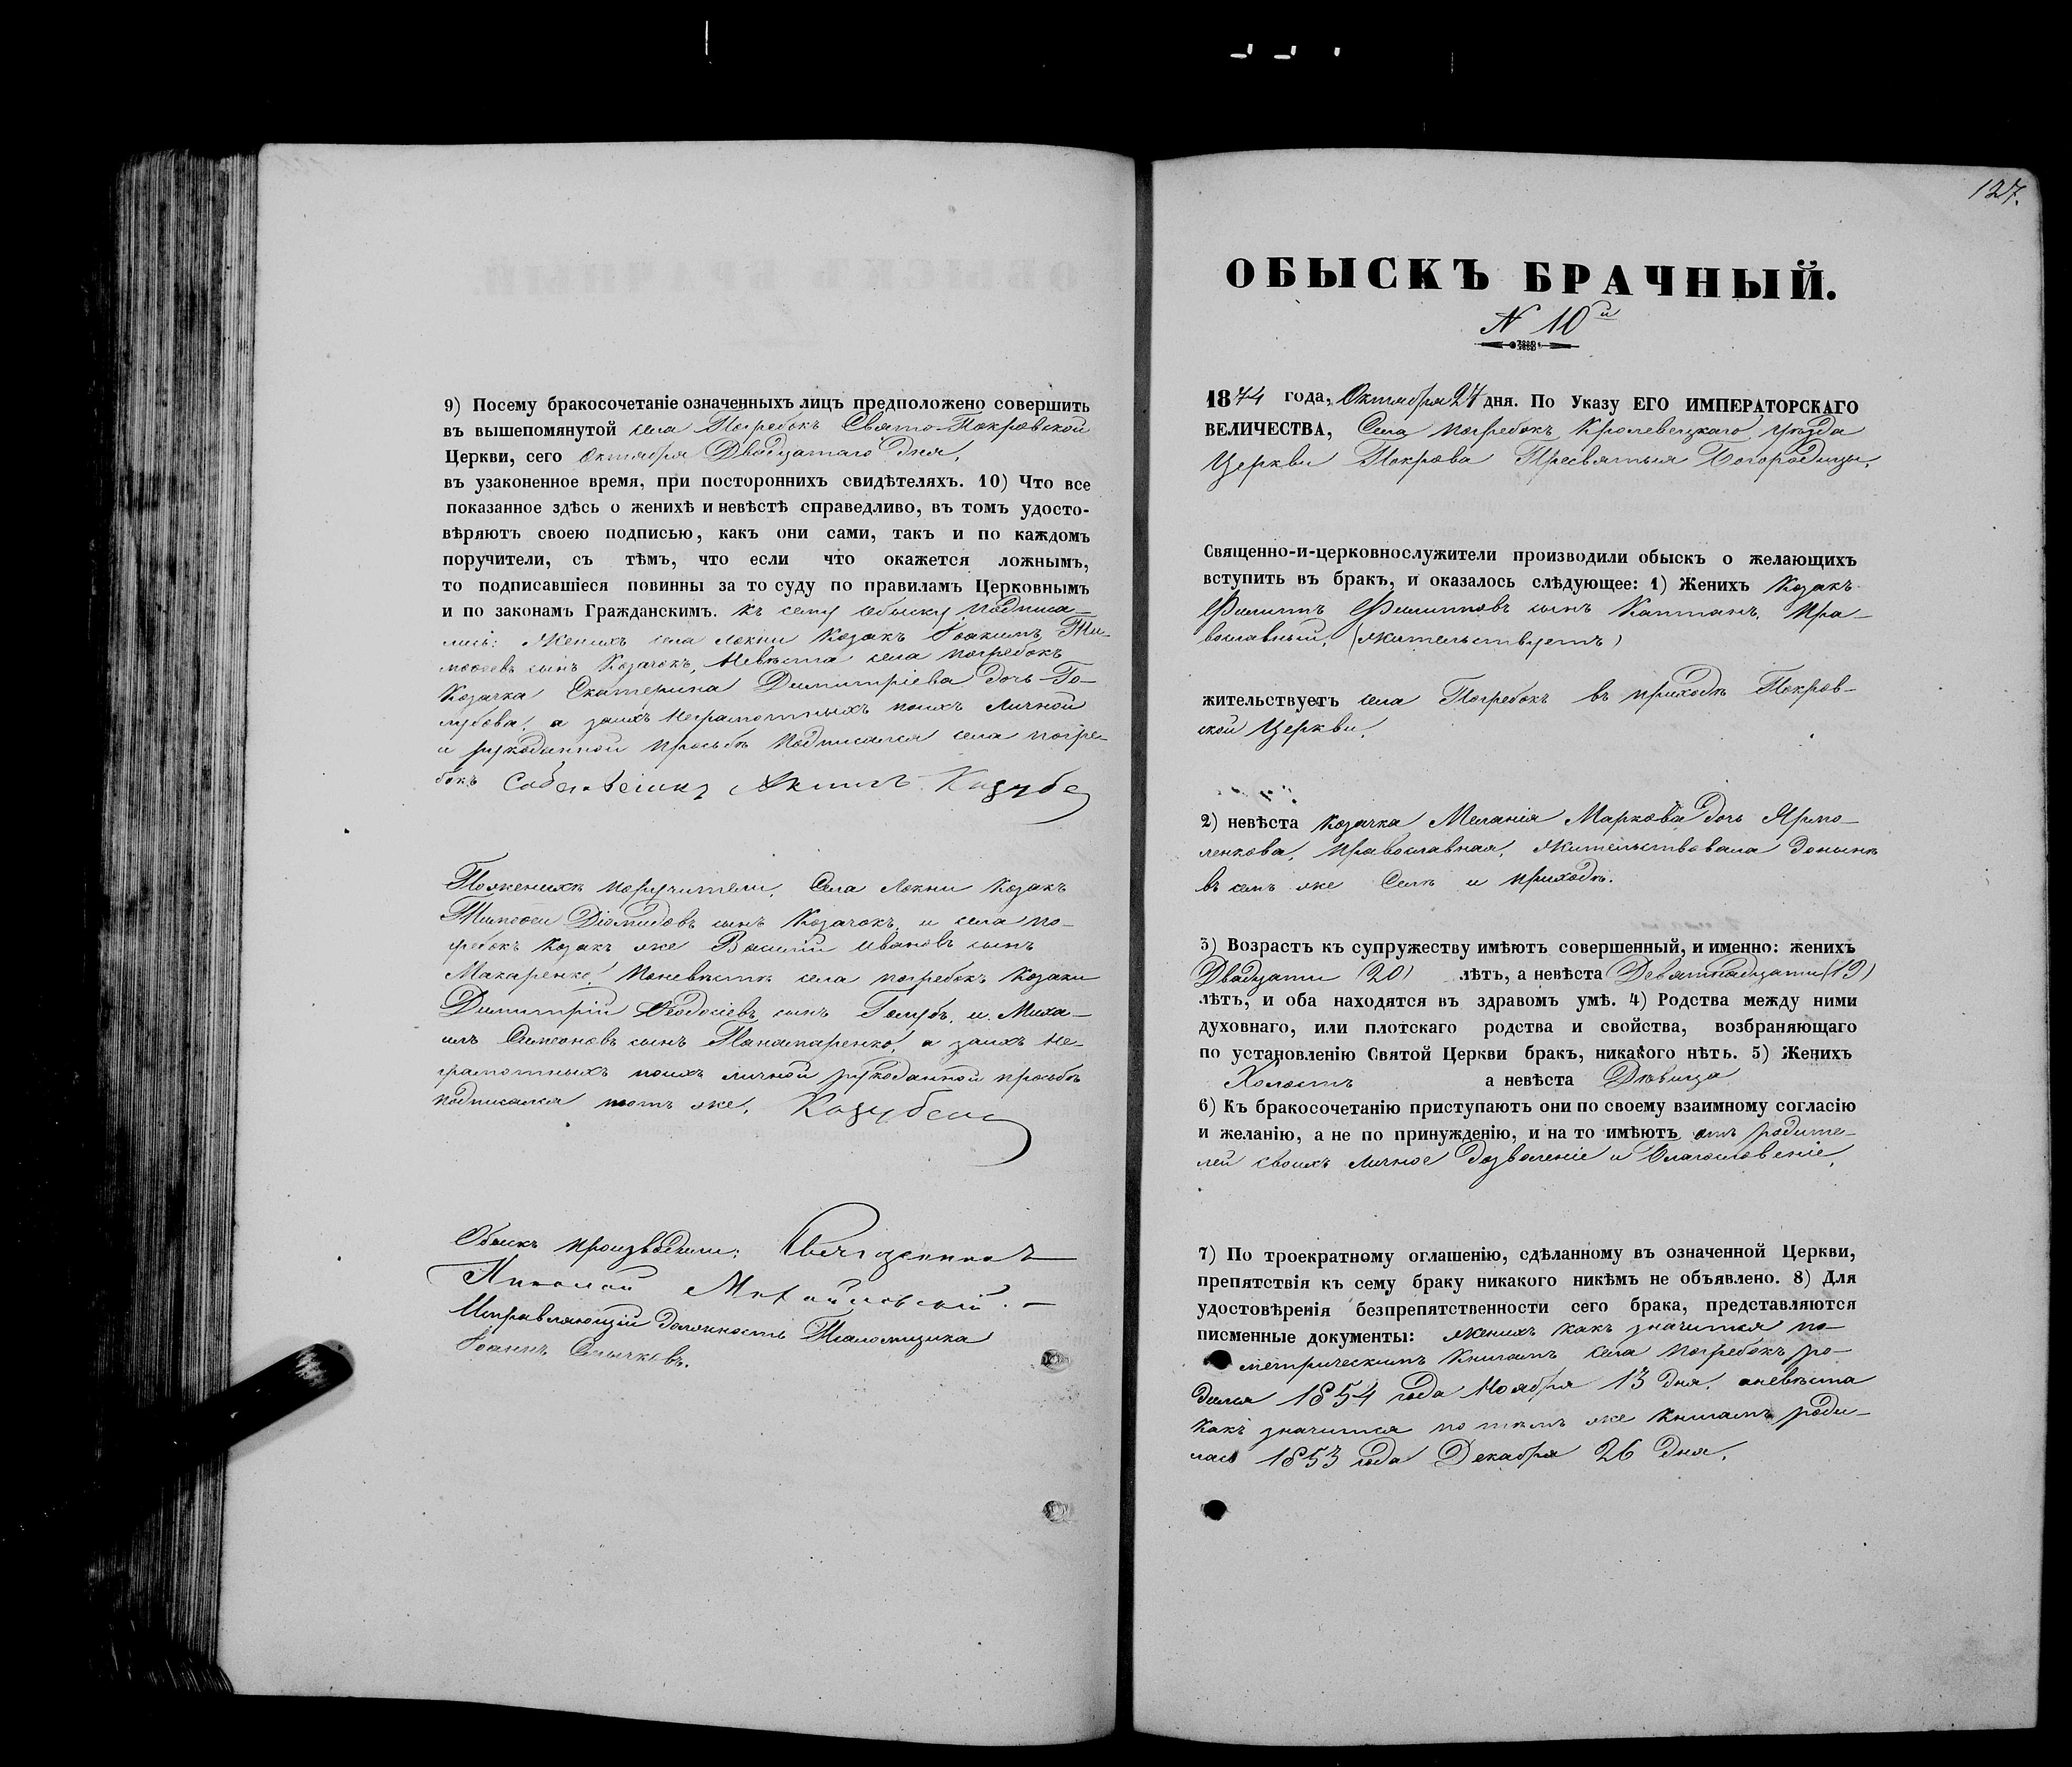 9) Посему бракосочетаніе означенныхъ лицъ предположено совершить
въ вышепомянутой села Погребокъ Свято-Покровской
Церкви, сего Октября Двадцатаго Дня,
въ узаконенное время, при постороннихъ свидѣтеляхъ. 10) Что все
показанное здѣсь о женихѣ и невѣстѣ справедливо, въ томъ удосто-
вѣряютъ своею подписью, какъ они сами, такъ и по каждомъ
поручители, съ тѣмъ, что если что окажется ложнымъ,
то подписавшіеся повинны за то суду по правиламъ Церковнымъ
и по законамъ Гражданскимъ. Къ сему обыску подписа-
лись: Женихъ села Локни Козакъ Іоакимъ Ти-
моѳеевъ сынъ Козачокъ, Невѣста села Погребокъ
Козачка Екатерина Димитріева дочь Го-
лубова, а заихъ неграмотныхъ поихъ личной
и рукоданной просьбѣ подписался села Погре-
бокъ Якимъ
Поженихѣ поручители, Села Локни Козакъ
Тимоѳей Діомидовъ сынъ Козачокъ, и села По-
гребокъ Козакъ же Василій Ивановъ сынъ
Макаренко, Поневѣстѣ села Погребокъ Козаки
Димитрій Ѳеодосіевъ сынъ Голубъ, и Миха-
илъ Симеоновъ сынъ Панатаренко, а заихъ не-
грамотныхъ поихъ личной рукоданной просьбѣ
подписался тотъ же,
Обыскъ производили: Священникъ
Николай Михайловскій.
Исправляющій должность Псаломщика
Іоаннъ
127.
ОБЫСКЪ БРАЧНЫЙ.
N 10й
1874 года, Октября 27 дня. По Указу ЕГО ИМПЕРАТОРСКАГО
ВЕЛИЧЕСТВА, Села Погребокъ Кролевецкаго уѣзда
Церкви Покрова Пресвятыя Богородицы,
Священно-и-церковнослужители производили обыскъ о желающихъ
вступить въ бракъ, и оказалось слѣдующее: 1) Женихъ Козакъ
Филиппъ Филипповъ сынъ Каптанъ, Пра-
вославный, (жительствуетъ)
жительствуетъ села Погребокъ въ приходѣ Покров-
ской Церкви,
2) невѣста Козачка Меланія Маркова дочь Ярмо-
ленкова, Православная, жительствовала донынѣ
въ семъ же Селѣ и приходѣ.
3) Возрастъ къ супружеству имѣютъ совершенный, и именно: женихъ
Двадцати (20) лѣтъ, а невѣста Девятнадцати (19)
лѣтъ, и оба находятся въ здравомъ умѣ. 4) Родства между ними
духовнаго, или плотскаго родства и свойства, возбраняющаго
по установленію Святой Церкви бракъ, никакого нѣтъ. 5) Женихъ
Холостъ а невѣста Дѣвица
6) Къ бракосочетанію приступаютъ они по своему взаимному согласію
и желанію, а не по принужденію, и на то имѣютъ отъ родите-
лей своихъ личное дозволеніе и благословеніе,
7) По троекратному оглашенію, сдѣланному въ означенной Церкви,
препятствія къ сему браку никакого никѣмъ не объявлено. 8) Для
удостовѣренія безпрепятственности сего брака, представляются
писменные документы: женихъ какъ значится по
метрическимъ Книгамъ села Погребокъ ро-
дился 1854 года Ноября 13 дня, аневѣста
какъ значится по тѣмъ же Книгамъ роди-
лась 1853 года Декабря 26 дня,